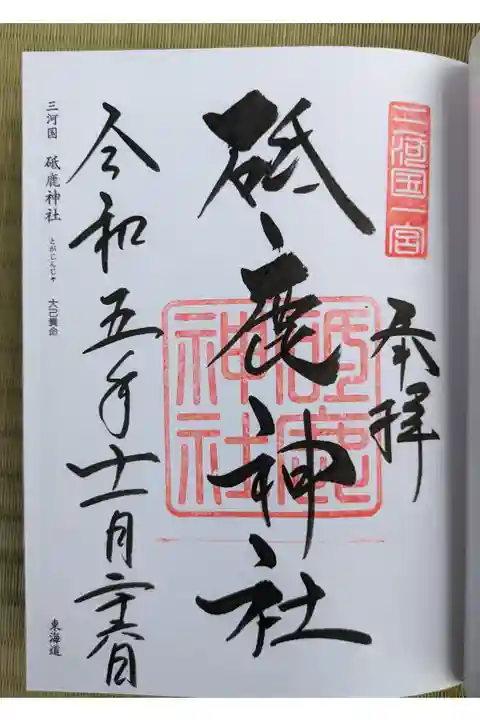 三河国一宮
奉拝
砥鹿神社
砥鹿
神社
令和五年十一月二十六日
三河国 砥鹿神社 とがじんじゃ 大己貴命
東海道